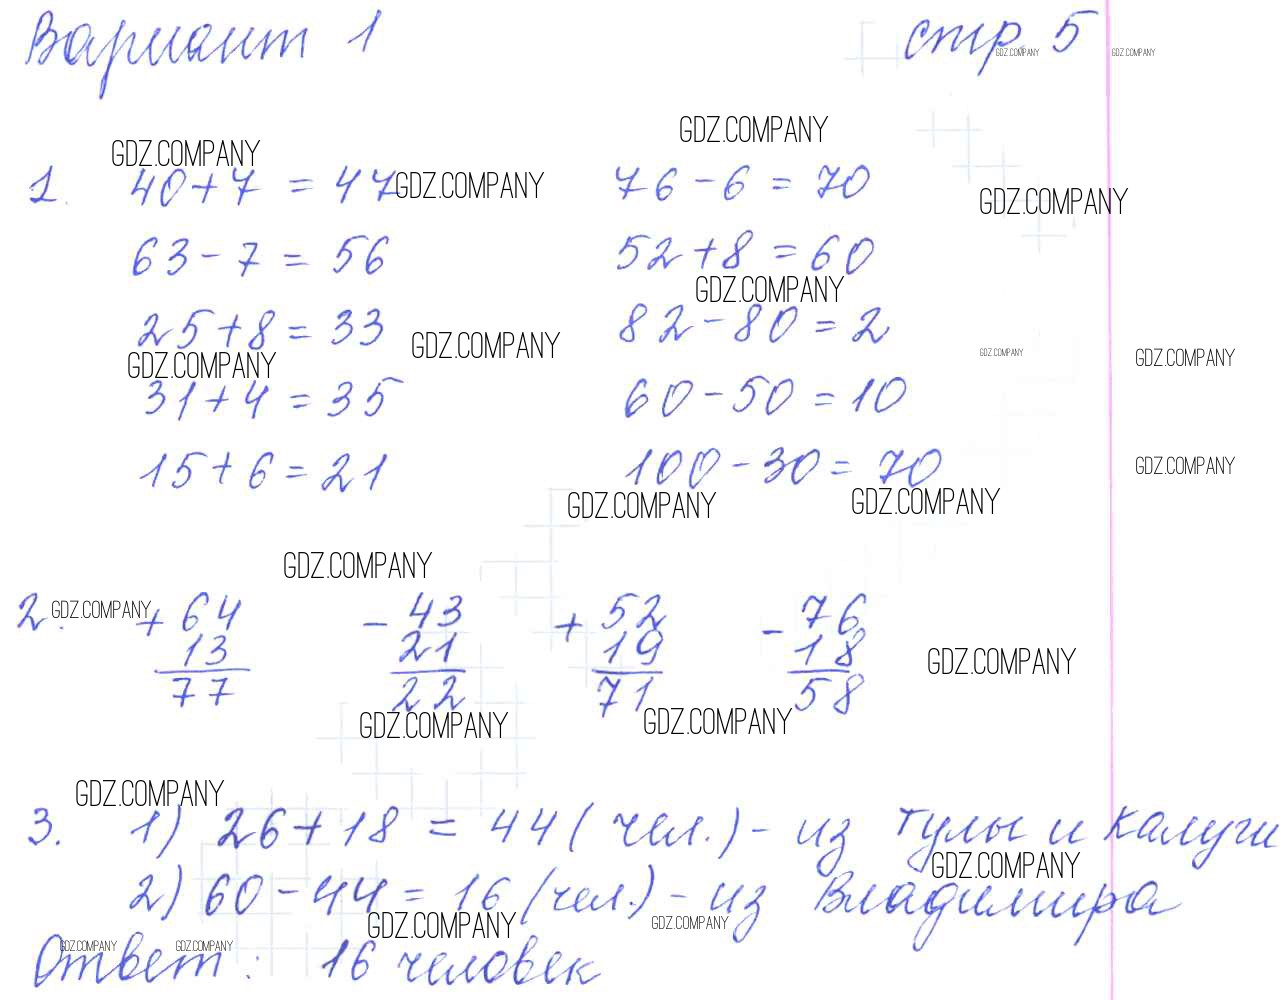 Вариант 1 стр 5
GDZ.COMPANY GDZ.COMPANY
GDZ.COMPANY GDZ.COMPANY
1. 40+7 = 47 GDZ.COMPANY 76-6 = 70 GDZ.COMPANY
63-7 = 56 52+8 = 60
GDZ.COMPANY
25+8 = 33 GDZ.COMPANY 82-80 = 2 GDZ.COMPANY GDZ.COMPANY
GDZ.COMPANY
31+4 = 35 60-50 = 10
15+6 = 21 100-30 = 70 GDZ.COMPANY
GDZ.COMPANY GDZ.COMPANY
GDZ.COMPANY
2. GDZ.COMPANY + 64 - 43 + 52 - 76
13 21 19 18 GDZ.COMPANY
77 22 71 58
GDZ.COMPANY GDZ.COMPANY
GDZ.COMPANY
3. 1) 26+18 = 44 (чел.) - из Тулы и Калуги
GDZ.COMPANY
2) 60-44 = 16 (чел.) - из Владимира
GDZ.COMPANY GDZ.COMPANY
GDZ.COMPANY GDZ.COMPANY
Ответ: 16 человек